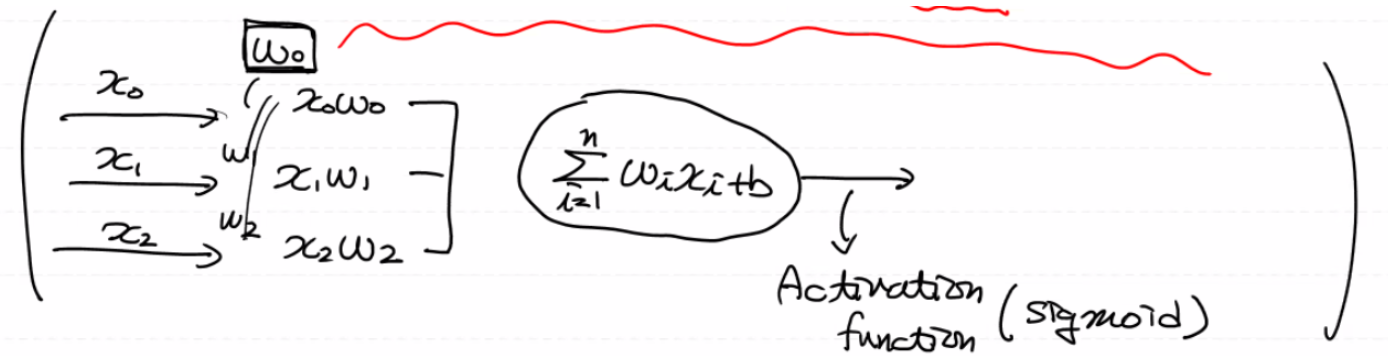 w₀
x₀ x₀w₀
x₁ w₁ x₁w₁
x₂ w₂ x₂w₂
n
∑ wᵢxᵢ+b
i=1
Activation
function (sigmoid)